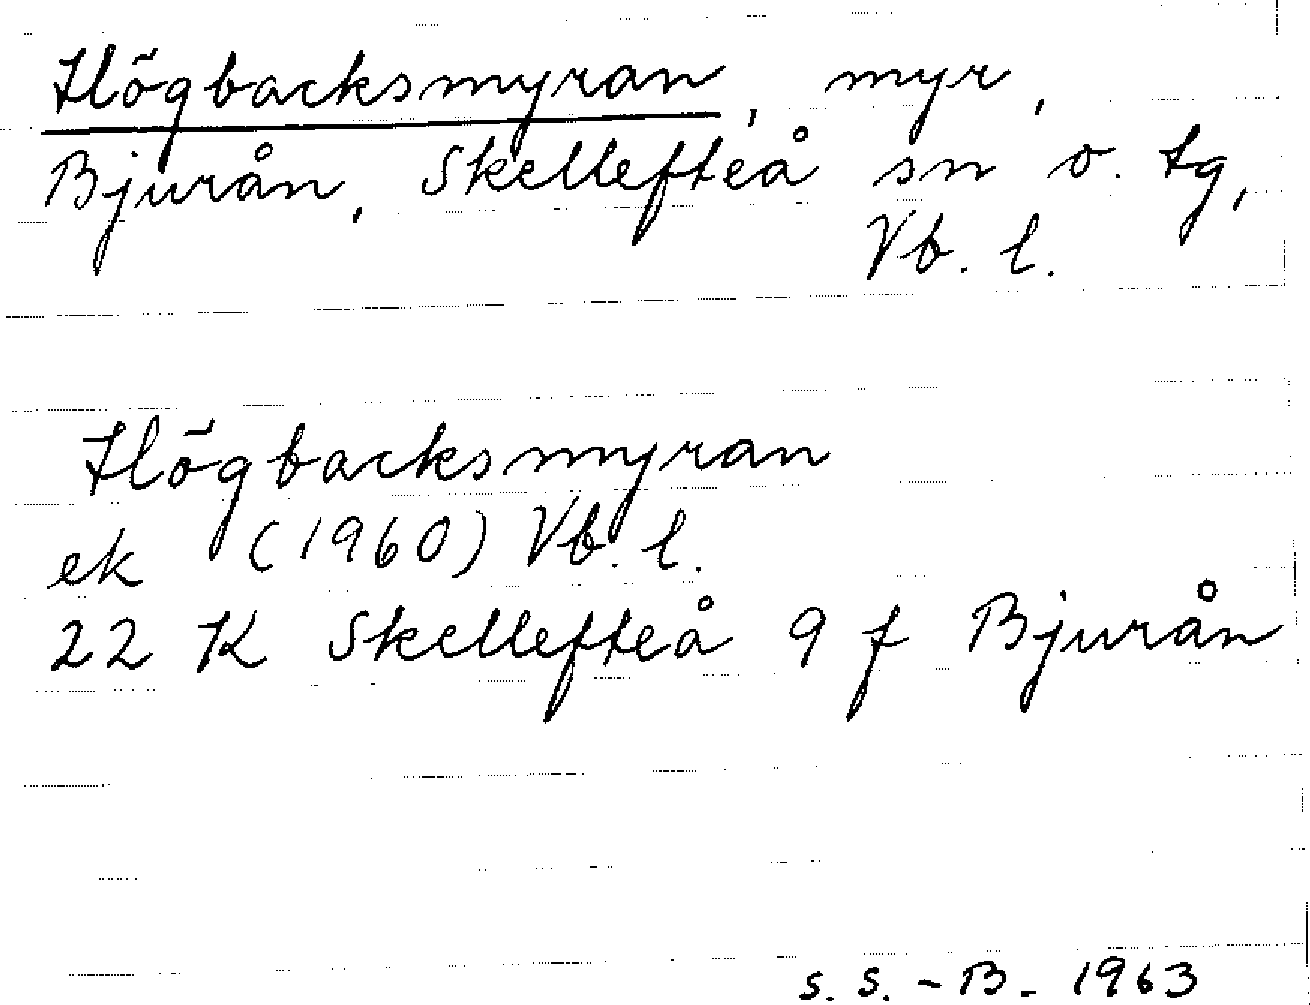 Högbacksmyran, myr,
Bjurån, Skellefteå sn o. tg,
Vb. l.
Högbacksmyran
ek (1960) Vb. l.
22 K Skellefteå 9 f Bjurån
S. S. - B. 1963